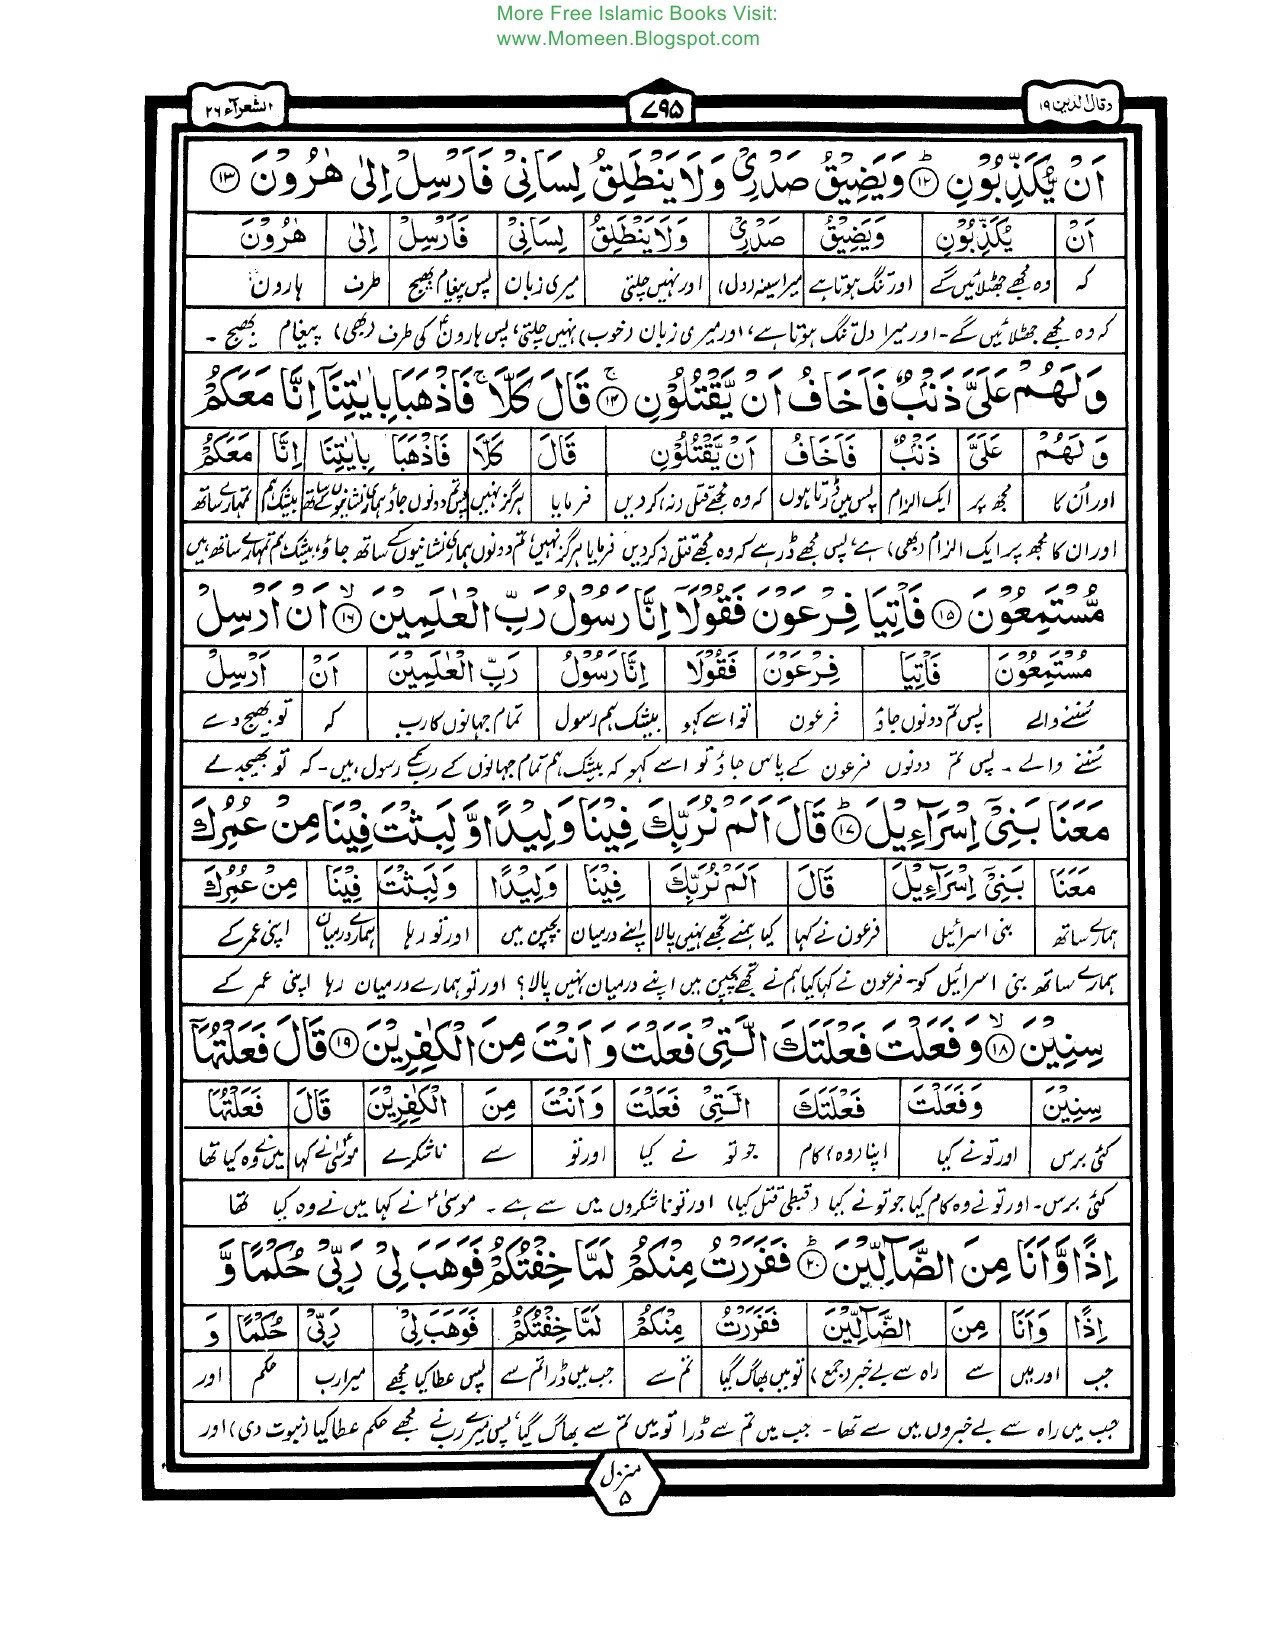 More Free Islamic Books Visit:
www.Momeen.Blogspot.com
وقال الذین ۱۹ ۷۹۵ الشعرآء ۲۶
اَنْ یُّکَذِّبُوْنِ ۱۲ؕ وَیَضِیْقُ صَدْرِیْ وَلَا یَنْطَلِقُ لِسَانِیْ فَاَرْسِلْ اِلٰی هٰرُوْنَ ۱۳
اَنْ یُکَذِّبُوْنِ وَیَضِیْقُ صَدْرِیْ وَلَا یَنْطَلِقُ لِسَانِیْ فَاَرْسِلْ اِلٰی هٰرُوْنَ
کہ وہ مجھے جھٹلائیں گے اور تنگ ہوتا ہے میرا سینہ (دل) اور نہیں چلتی میری زبان پس پیغام بھیج طرف ہارون
کہ وہ مجھے جھٹلائیں گے۔ اور میرا دل تنگ ہوتا ہے، اور میری زبان (خوب) نہیں چلتی، پس ہارونؑ کی طرف (بھی) پیغام بھیج۔
وَلَهُمْ عَلَیَّ ذَنْۢبٌ فَاَخَافُ اَنْ یَّقْتُلُوْنِ ۱۴ۚ قَالَ کَلَّا ۚ فَاذْهَبَا بِاٰیٰتِنَاۤ اِنَّا مَعَکُمْ
وَلَهُمْ عَلَیَّ ذَنْۢبٌ فَاَخَافُ اَنْ یَّقْتُلُوْنِ قَالَ کَلَّا فَاذْهَبَا بِاٰیٰتِنَا اِنَّا مَعَکُمْ
اور اُن کا مجھ پر ایک الزام پس میں ڈرتا ہوں کہ وہ مجھے قتل (نہ) کر دیں فرمایا ہرگز نہیں پس تم دونوں جاؤ ہماری نشانیوں کے ساتھ بیشک ہم تمہارے ساتھ
اور ان کا مجھ پر ایک الزام (بھی) ہے، پس مجھے ڈر ہے کہ وہ مجھے قتل نہ کر دیں فرمایا ہرگز نہیں، تم دونوں ہماری نشانیوں کے ساتھ جاؤ، بیشک ہم تمہارے ساتھ ہیں
مُّسْتَمِعُوْنَ ۱۵ فَاْتِیَا فِرْعَوْنَ فَقُوْلَاۤ اِنَّا رَسُوْلُ رَبِّ الْعٰلَمِیْنَ ۱۶ۙ اَنْ اَرْسِلْ
مُسْتَمِعُوْنَ فَاْتِیَا فِرْعَوْنَ فَقُوْلَا اِنَّا رَسُوْلُ رَبِّ الْعٰلَمِیْنَ اَنْ اَرْسِلْ
سُننے والے پس تم دونوں جاؤ فرعون تو اسے کہو بیشک ہم رسول تمام جہانوں کا رب کہ تو بھیج دے
سُننے والے۔ پس تم دونوں فرعون کے پاس جاؤ تو اسے کہو کہ بیشک ہم تمام جہانوں کے رب کے رسول ہیں۔ کہ تو بھیجدے
مَعَنَا بَنِیْۤ اِسْرَآءِیْلَ ۱۷ؕ قَالَ اَلَمْ نُرَبِّکَ فِیْنَا وَلِیْدًا وَّلَبِثْتَ فِیْنَا مِنْ عُمُرِکَ
مَعَنَا بَنِیْۤ اِسْرَآءِیْلَ قَالَ اَلَمْ نُرَبِّکَ فِیْنَا وَلِیْدًا وَلَبِثْتَ فِیْنَا مِنْ عُمُرِکَ
ہمارے ساتھ بنی اسرائیل فرعون نے کہا کیا ہمنے تجھے نہیں پالا اپنے درمیان بچپن میں اور تو رہا ہمارے درمیان اپنی عمر کے
ہمارے ساتھ بنی اسرائیل کو۔ فرعون نے کہا کیا ہم نے تجھے بچپن میں اپنے درمیان نہیں پالا؟ اور تو ہمارے درمیان رہا اپنی عمر کے
سِنِیْنَ ۱۸ۙ وَفَعَلْتَ فَعْلَتَکَ الَّتِیْ فَعَلْتَ وَاَنْتَ مِنَ الْکٰفِرِیْنَ ۱۹ قَالَ فَعَلْتُهَاۤ
سِنِیْنَ وَفَعَلْتَ فَعْلَتَکَ الَّتِیْ فَعَلْتَ وَاَنْتَ مِنَ الْکٰفِرِیْنَ قَالَ فَعَلْتُهَاۤ
کئی برس اور تو نے کیا اپنا (وہ) کام جو تو نے کیا اور تو سے ناشکرے موسیٰؑ نے کہا میں نے وہ کیا تھا
کئی برس۔ اور تو نے وہ کام کیا جو تو نے کیا (قبطی قتل کیا) اور تو ناشکروں میں سے ہے۔ موسیٰؑ نے کہا میں نے وہ کیا تھا
اِذًا وَّاَنَا مِنَ الضَّآلِّیْنَ ۲۰ؕ فَفَرَرْتُ مِنْکُمْ لَمَّا خِفْتُکُمْ فَوَهَبَ لِیْ رَبِّیْ حُکْمًا وَّ
اِذًا وَاَنَا مِنَ الضَّآلِّیْنَ فَفَرَرْتُ مِنْکُمْ لَمَّا خِفْتُکُمْ فَوَهَبَ لِیْ رَبِّیْ حُکْمًا وَ
جب اور میں سے راہ سے بے خبر (جمع) تو میں بھاگ گیا تم سے جب میں ڈرا تم سے پس عطا کیا مجھے میرا رب حکم اور
جب میں راہ سے بے خبروں میں سے تھا۔ جب میں تم سے ڈرا تو میں تم سے بھاگ گیا، پس میرے رب نے مجھے حکم عطا کیا (نبوت دی) اور
منزل ۵